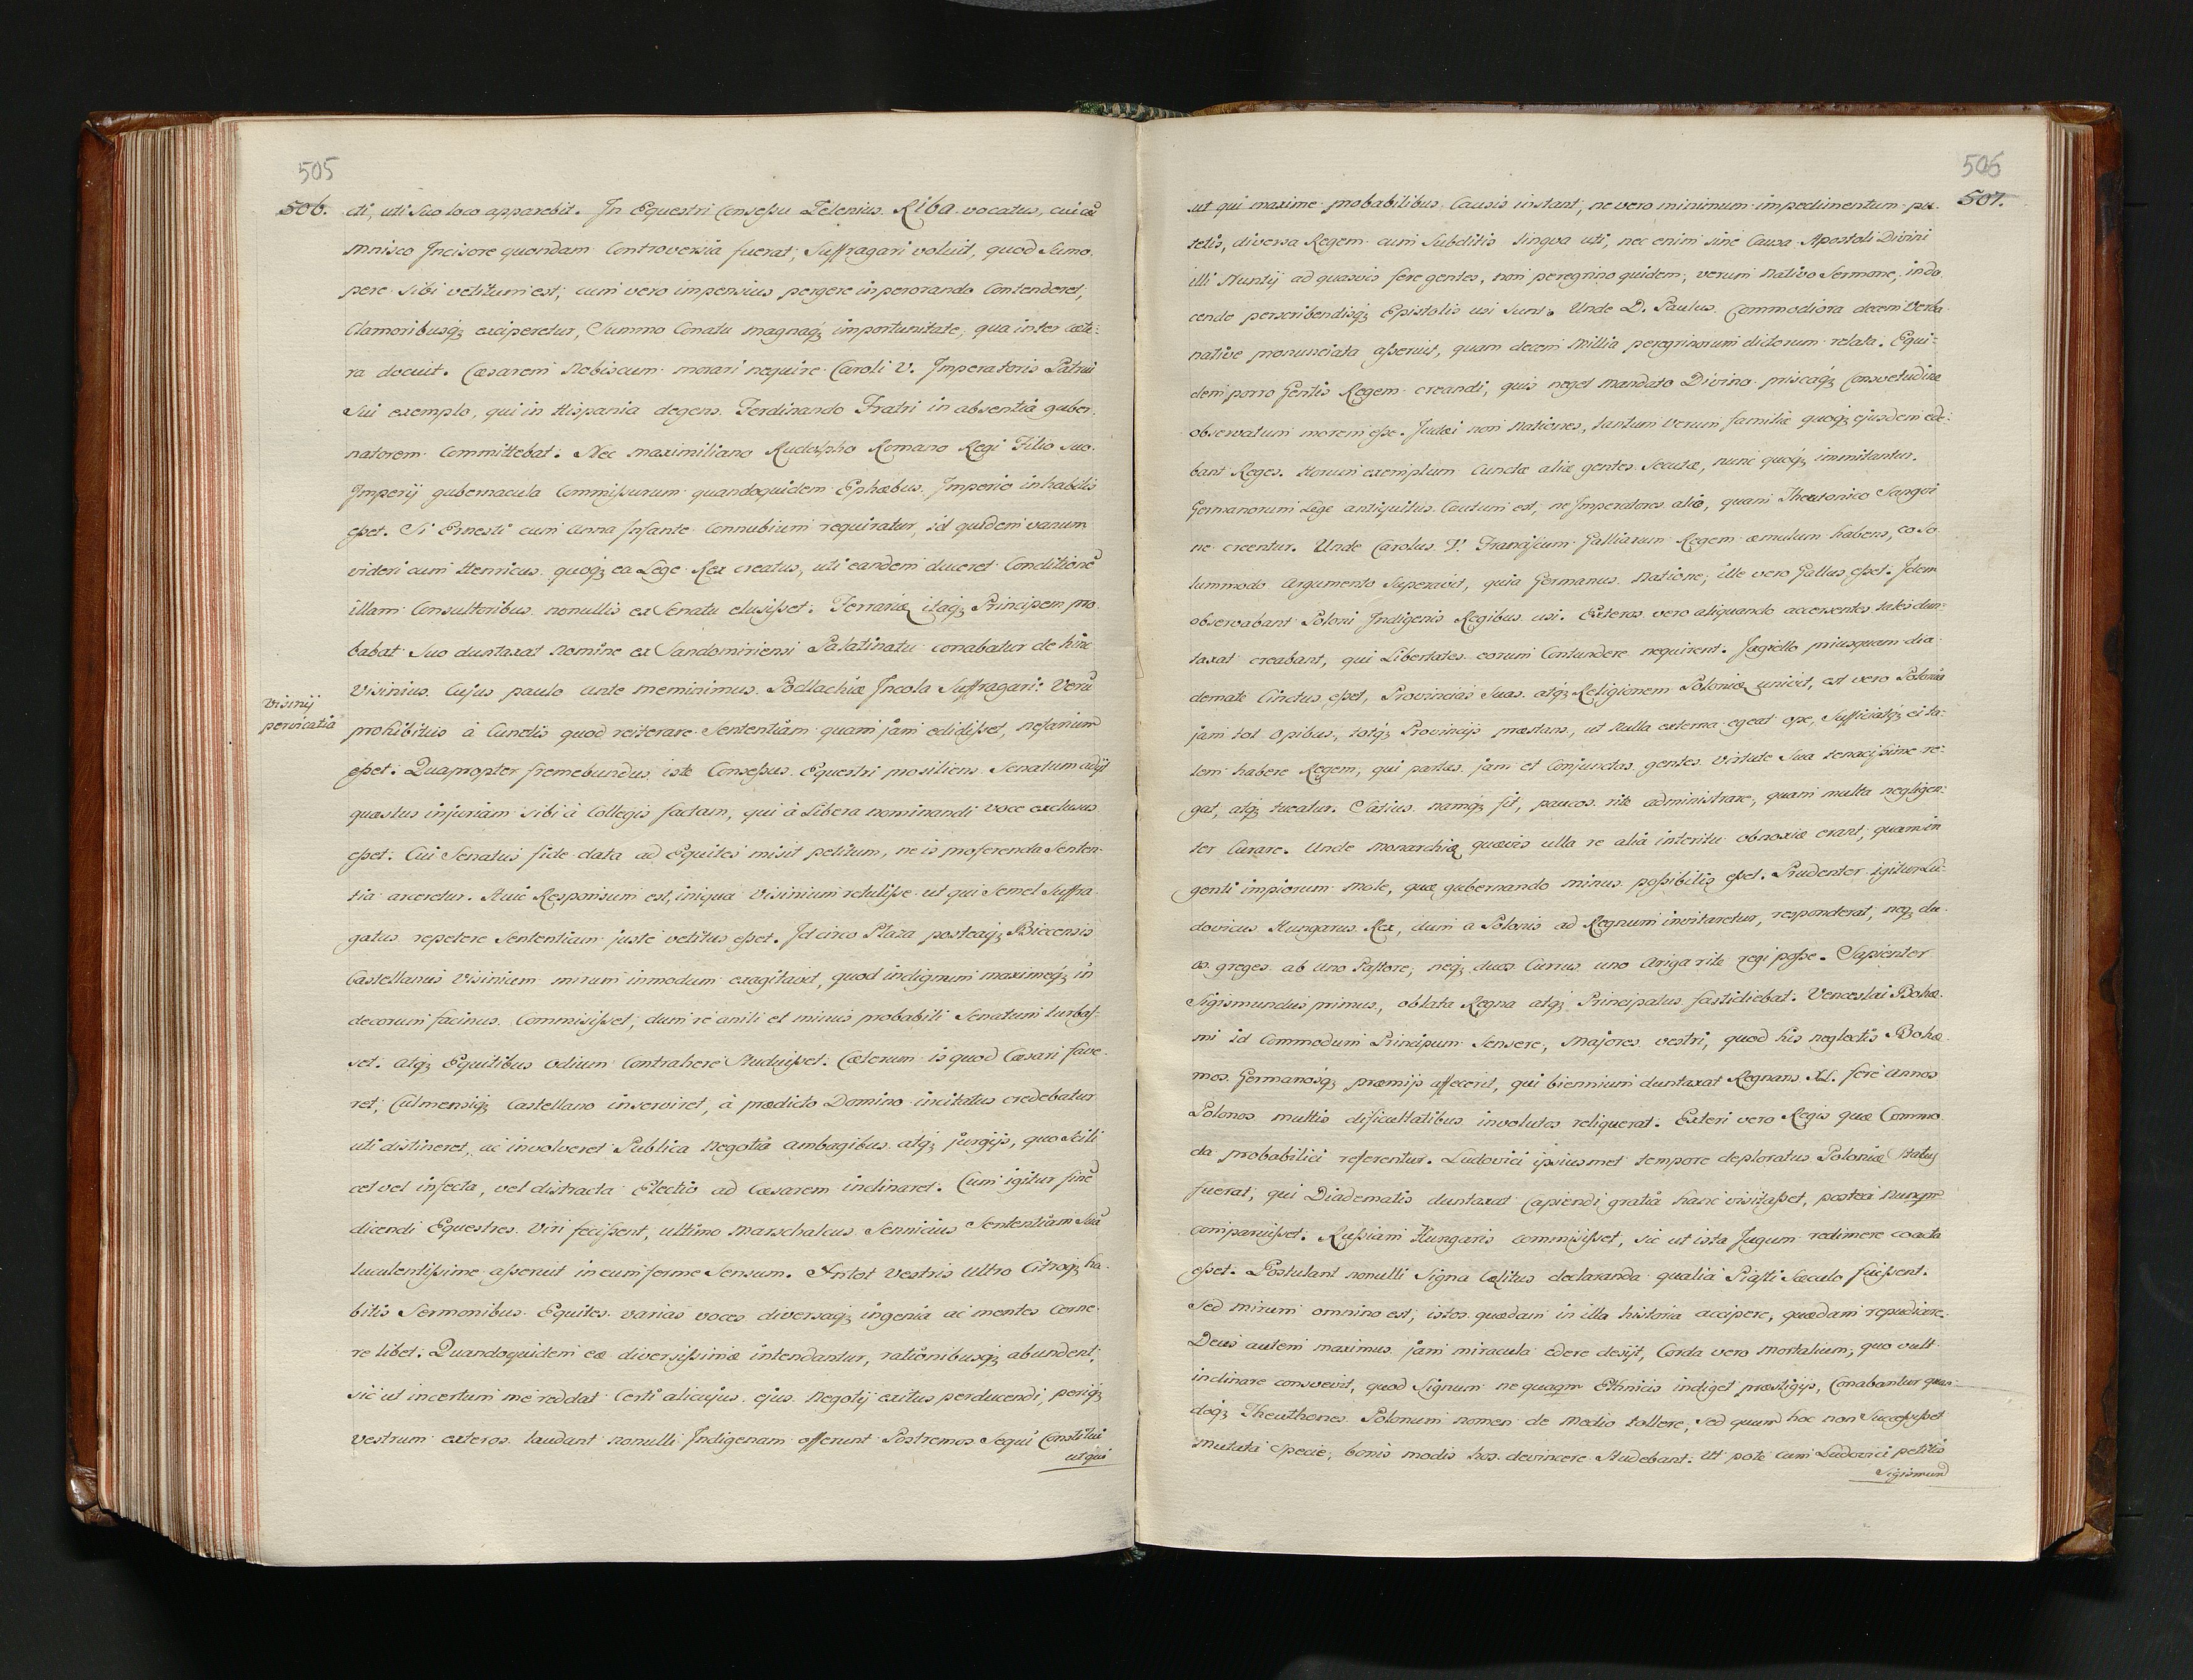 505
506.
cti, uti suo loco apparebit. In Equestri Consessu Zelenius Riba vocatus, cui cū
mnisco Incisore quondam Controversia fuerat, Suffragari voluit, quod Sumo
pere sibi vetitum est, cum vero impensius pergere in perorando Contenderet,
Clamoribusq; exciperetur, Summo Conatu magnaq; importunitate, qua inter cæte:
ra docuit. Cæsarem Nobiscum morari nequire Caroli V. Imperatoris Patrui
Sui exemplo, qui in Hispania degens Ferdinando Fratri in absentia guber.
natorem Committebat: Nec Maximiliano Rudolpho Romano Regi Filio Suo.
Imperij gubernacula Commissurum quandoquidem Ephæbus Imperio inhabilis
esset. Si Ernesti cum Anna Infante Connubium requiratur, id quidem vanum
videri cum Henricus quoq; ea Lege Rex creatus, uti eandem duceret Conditionē
illam Consultoribus nonullis ex Senatu elusisset: Ferrariæ itaq; Principem pro
babat Suo duntaxat Nomine ex Sandomiriensi Palatinatu conabatur de hinc
Visinij
pervicatia
Visinius Cujus paulo ante meminimus Podlachiæ Incola Suffragari: Verū
prohibitus à Cunctis quod reiterare Sententiam quam jam edidisset, nefarium
esset: Quapropter fremebundus iste Consessus Equestri prosiliens Senatum adijt
quæstus injuriam sibi à Collegis factam, qui à Libera nominandi voce exclusus
esset: Cui Senatus fide data ad Equites misit petitum, ne is proferenda Senten-
tia arceretur. Huic Responsum est, iniqua Visinium retulisse ut qui Semel Suffra.
gatus repetere Sententiam justè vetitus esset. Idcirco Plaza posteaq; Biecensis
Castellanus Visinium mirum inmodum exagitavit, quod indignum maximeq; in
decorum facinus Commisisset, dum re anili et minus probabili Senatum turbas-
set: atq; Equitibus odium Contrahere Studuisset: Cæterum is quod Cæsari fave.
ret, Culmensiq; Castellano inserviret, à prædicto Domino incitatus credebatur
uti distineret, ac involveret Publica Negotia ambagibus atq; jurgijs, quo scili
cet vel infecta, vel distracta Electio ad Cæsarem inclinaret: Cum igitur finē
dicendi Equestres Viri fecissent, ultimo Marschalcus Sennicius Sententiam Suā
luculentissime asseruit in eum ferme Sensum. In tot Vestris Ultro Citroq; ha.
bitis Sermonibus Equites varias voces diversaq; ingenia ac mentes Cerne
re libet: Quandoquidem eæ diversissimæ intendantur, rationibusq; abundent,
sic ut incertum me reddat Certi alicujus ejus Negotij exitus perducendi, periq;
vestrum exteros laudant nonulli Indigenam offerunt Postremos Sequi Constitui
ut qui
506
507.
ut qui maxime probabilibus Causis instant, ne vero minimum impedimentum pu.
tetis, diversa Regem cum Subditis lingva uti, nec enim sine Causa Apostoli Divini
illi Nuntij ad quasvis fere gentes, non peregrino quidem, verum nativo Sermone, in do
cende perscribendisq; Epistolis usi sunt. Unde D. Paulus Commodiora decem Verba
native pronunciata asseruit, quam decem Millia peregrinorum dictorum relata. Equi-
dem porro Gentis Regem creandi, quis neget mandato Divino priscaq; Consvetudine
observatum morem esse. Judæi non Nationes, tantum Verum familiæ quoq; ejusdem ede:
bant Reges. Horum exemplum Cunctæ aliæ gentes secutæ, nunc quoq; immitantur.
Germanorum Lege antiquitus Cautum est, ne Imperatores alio, quam Theutonico Sangvi
ne creentur. Unde Carolus V. Franciscum Galliarum Regem æmulum habens, eo So
lummodo argumento Superavit, quia Germanus Natione, ille vero Gallus esset. Idem
observabant Poloni Indigenis Regibus usi. Exteros vero aliquando accersentes tales dun-
taxat creabant, qui Libertates eorum Contundere nequirent. Jagiello priusquam dia
demate Cinctus esset, Provincias Suas atq; Religionem Poloniæ univit, est vero Polonia
jam tot Opibus, totq; Provincijs præstans, ut Nulla externa egeat ope, Sufficiatq; ei ta-
lem habere Regem, qui partas jam et Conjunctas gentes Virtute Sua tenacissime re-
gat, atq; tueatur. Satius namq; sit, paucos rite administrare, quam multa negligen-
ter Curare. Unde Monarchiæ quævis ulla re alia interitu obnoxiæ erant, quam in
genti impiorum Mole, quæ gubernando minus possibilis esset. Prudenter igitur Lu-
dovicus Hungarus Rex, dum a Polonis ad Regnum invitaretur, responderat, neq; du.
os greges ab Uno Pastore, neq; duos Currus uno Ariga rite regi posse. Sapienter
Sigismundus primus, oblata Regna atq; Principatus fastidiebat: Venceslai Bohæ.
mi id Commodum Principum Sensere, Majores vestri, quod his neglectis Bohæ
mos Germanosq; præmijs affecerit, qui biennium duntaxat Regnans XL. fere Annos
Polonos multis dificultatibus involutos reliquerat. Exteri vero Regis quæ Commo
da probabilici referentur. Ludovici ipsiusmet tempore deploratus Poloniæ Status
fuerat, qui Diadematis duntaxat Capiendi gratiâ hanc visitasset, postea nunqm̄
comparuisset: Russiam Hungaris commisisset, sic ut ista Jugum redimere coacta
esset. Postulant nonulli Signa Cœlitus declaranda qualia Piasti Sæculo fuissent.
Sed mirum omnino est, istos quædam in illa historia accipere, quædam repudiare.
Deus autem maximus jam miracula edere desijt, Corda vero Mortalium, quo vult
inclinare consvevit, quod Signum ne quaqm̄ Ethnicis indiget præstigijs, Conabantur quan-
doq; Theuthones Polonum nomen de medio tollere, sed quum hoc non Successisset
Mutata Specie, bonis modis hos devincere Studebant: Ut pote cum Ludovici petitis
Sigismund